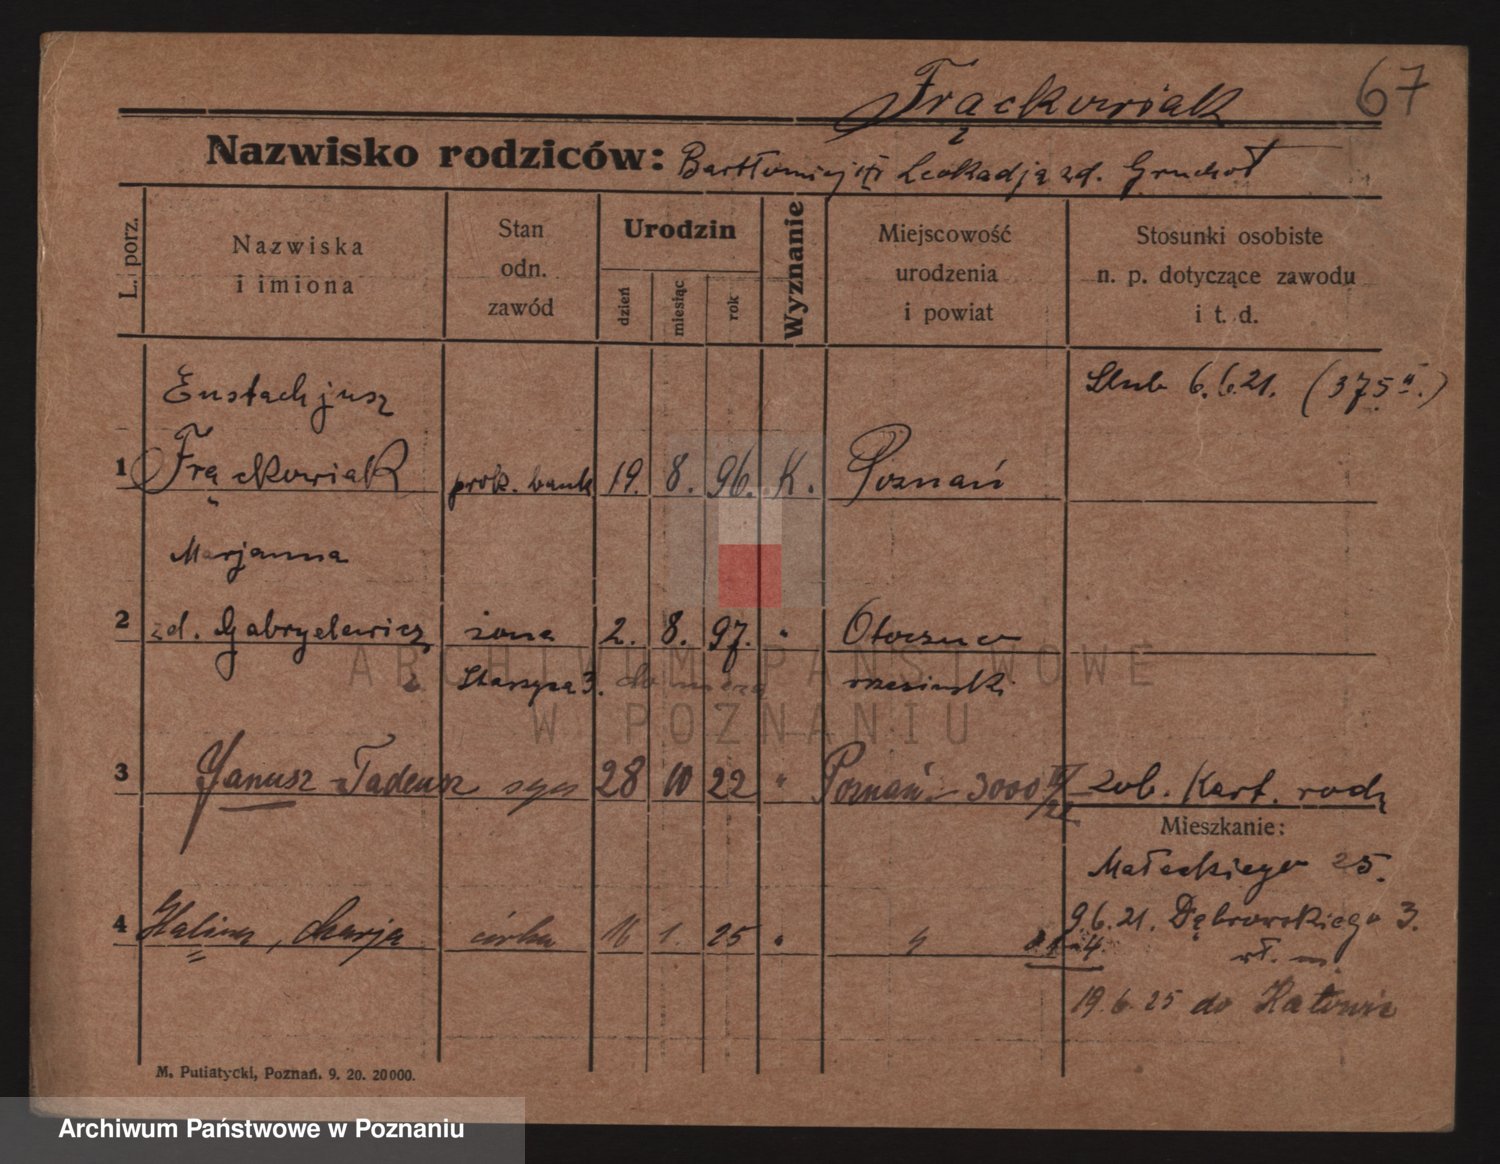 67
Frąckowiak
Nazwisko rodziców: Bartłomiej i Leokadja zd. Gruchot
L. porz.
Nazwiska
i imiona
Stan
odn.
zawód
Urodzin
dzień
miesiąc
rok
Wyznanie
Miejscowość
urodzenia
i powiat
Stosunki osobiste
n. p. dotyczące zawodu
i t. d.
Eustachjusz
Ślub 6.6.21. (375 II.)
1 Frąckowiak prok. bank 19. 8. 96. K. Poznań
Marjanna
2 zd. Gabryelewicz żona 2. 8. 97. " Otoczno
3. do męża wrzesiński
3 Janusz Tadeusz syn 28 10 22 " Poznań 3000 zob. Kart. rodz
Mieszkanie:
Małeckiego 25.
9.6.21. Dąbrowskiego 3.
4 Halina, Marja córka 16 1. 25 " "
wł. m.
19.6.25 do Katowic
M. Putiatycki, Poznań. 9. 20. 20000.
ARCHIWUM PAŃSTWOWE
W POZNANIU
Archiwum Państwowe w Poznaniu